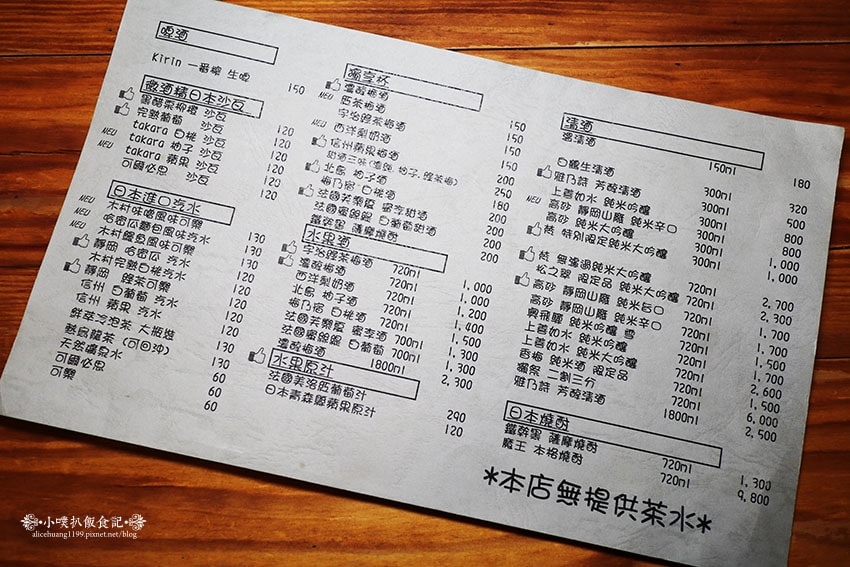 啤酒
Kirin 一番搾 生啤 150
微酒精日本沙瓦
黑醋栗柳橙 沙瓦 120
完熟葡萄 沙瓦 120
NEW takara 白桃 沙瓦 120
NEW takara 柚子 沙瓦 120
NEW takara 蘋果 沙瓦 120
可爾必思 沙瓦 120
日本進口汽水
NEW 木村味噌風味可樂 130
哈密瓜麵包風味汽水 130
NEW 木村鰹魚風味可樂 130
靜岡 哈密瓜 汽水 120
木村完熟白桃汽水 130
靜岡 綠茶可樂 120
信州 白葡萄 汽水 120
信州 蘋果 汽水 120
鮮萃冷泡茶 大瓶裝 130
熱烏龍茶 (可回沖) 130
天然礦泉水 60
可爾必思 60
可樂 60
獨享杯
濃醇梅酒 150
NEW 茶梅酒 150
宇治綠茶梅酒 150
NEW 西洋梨奶酒 150
信州蘋果梅酒 200
甜酒三味(濃醇、柚子、綠茶梅) 250
北島 柚子酒 180
梅乃宿 白桃酒 200
法國芙樂夏 蜜李甜酒 200
法國蜜 白葡萄甜酒 200
鐵幹黑 薩摩燒酎 200
水果酒
宇治綠茶梅酒 720ml 1,000
濃醇梅酒 720ml 1,000
西洋梨奶酒 720ml 1,200
北島 柚子酒 720ml 1,400
梅乃宿 白桃酒 720ml 1,500
法國芙樂夏 蜜李酒 700ml 1,300
法國蜜 白葡萄 700ml 1,300
濃醇梅酒 1800ml 2,300
水果原汁
法國美洛西葡萄汁 290
日本青森縣蘋果原汁 120
清酒
溫清酒 150ml 180
白鶴生清酒 300ml 320
雅乃詩 芳醇清酒 300ml 500
上善如水 純米吟釀 300ml 800
NEW 高砂 靜岡山廢 純米辛口 300ml 800
高砂 靜岡山廢 純米大吟釀 300ml 1,000
梵 特別限定純米大吟釀 300ml 1,000
梵 無濾過純米大吟釀 720ml 2,700
松之翠 限定品 純米大吟釀 720ml 2,300
高砂 靜岡山廢 純米旨口 720ml 1,700
高砂 靜岡山廢 純米辛口 720ml 1,700
興飛騨 純米吟釀 雪 720ml 1,500
上善如水 純米大吟釀 720ml 1,700
上善如水 純米吟釀 720ml
香梅 純米酒 限定品 720ml 2,600
獺祭 二割三分 720ml 1,500
雅乃詩 芳醇清酒 1800ml 6,000
2,500
日本燒酎
鐵幹黑 薩摩燒酎 720ml 1,300
魔王 本格燒酎 720ml 9,800
*本店無提供茶水*
•小噗扒飯食記•
alicehuang1199.pixnet.net/blog